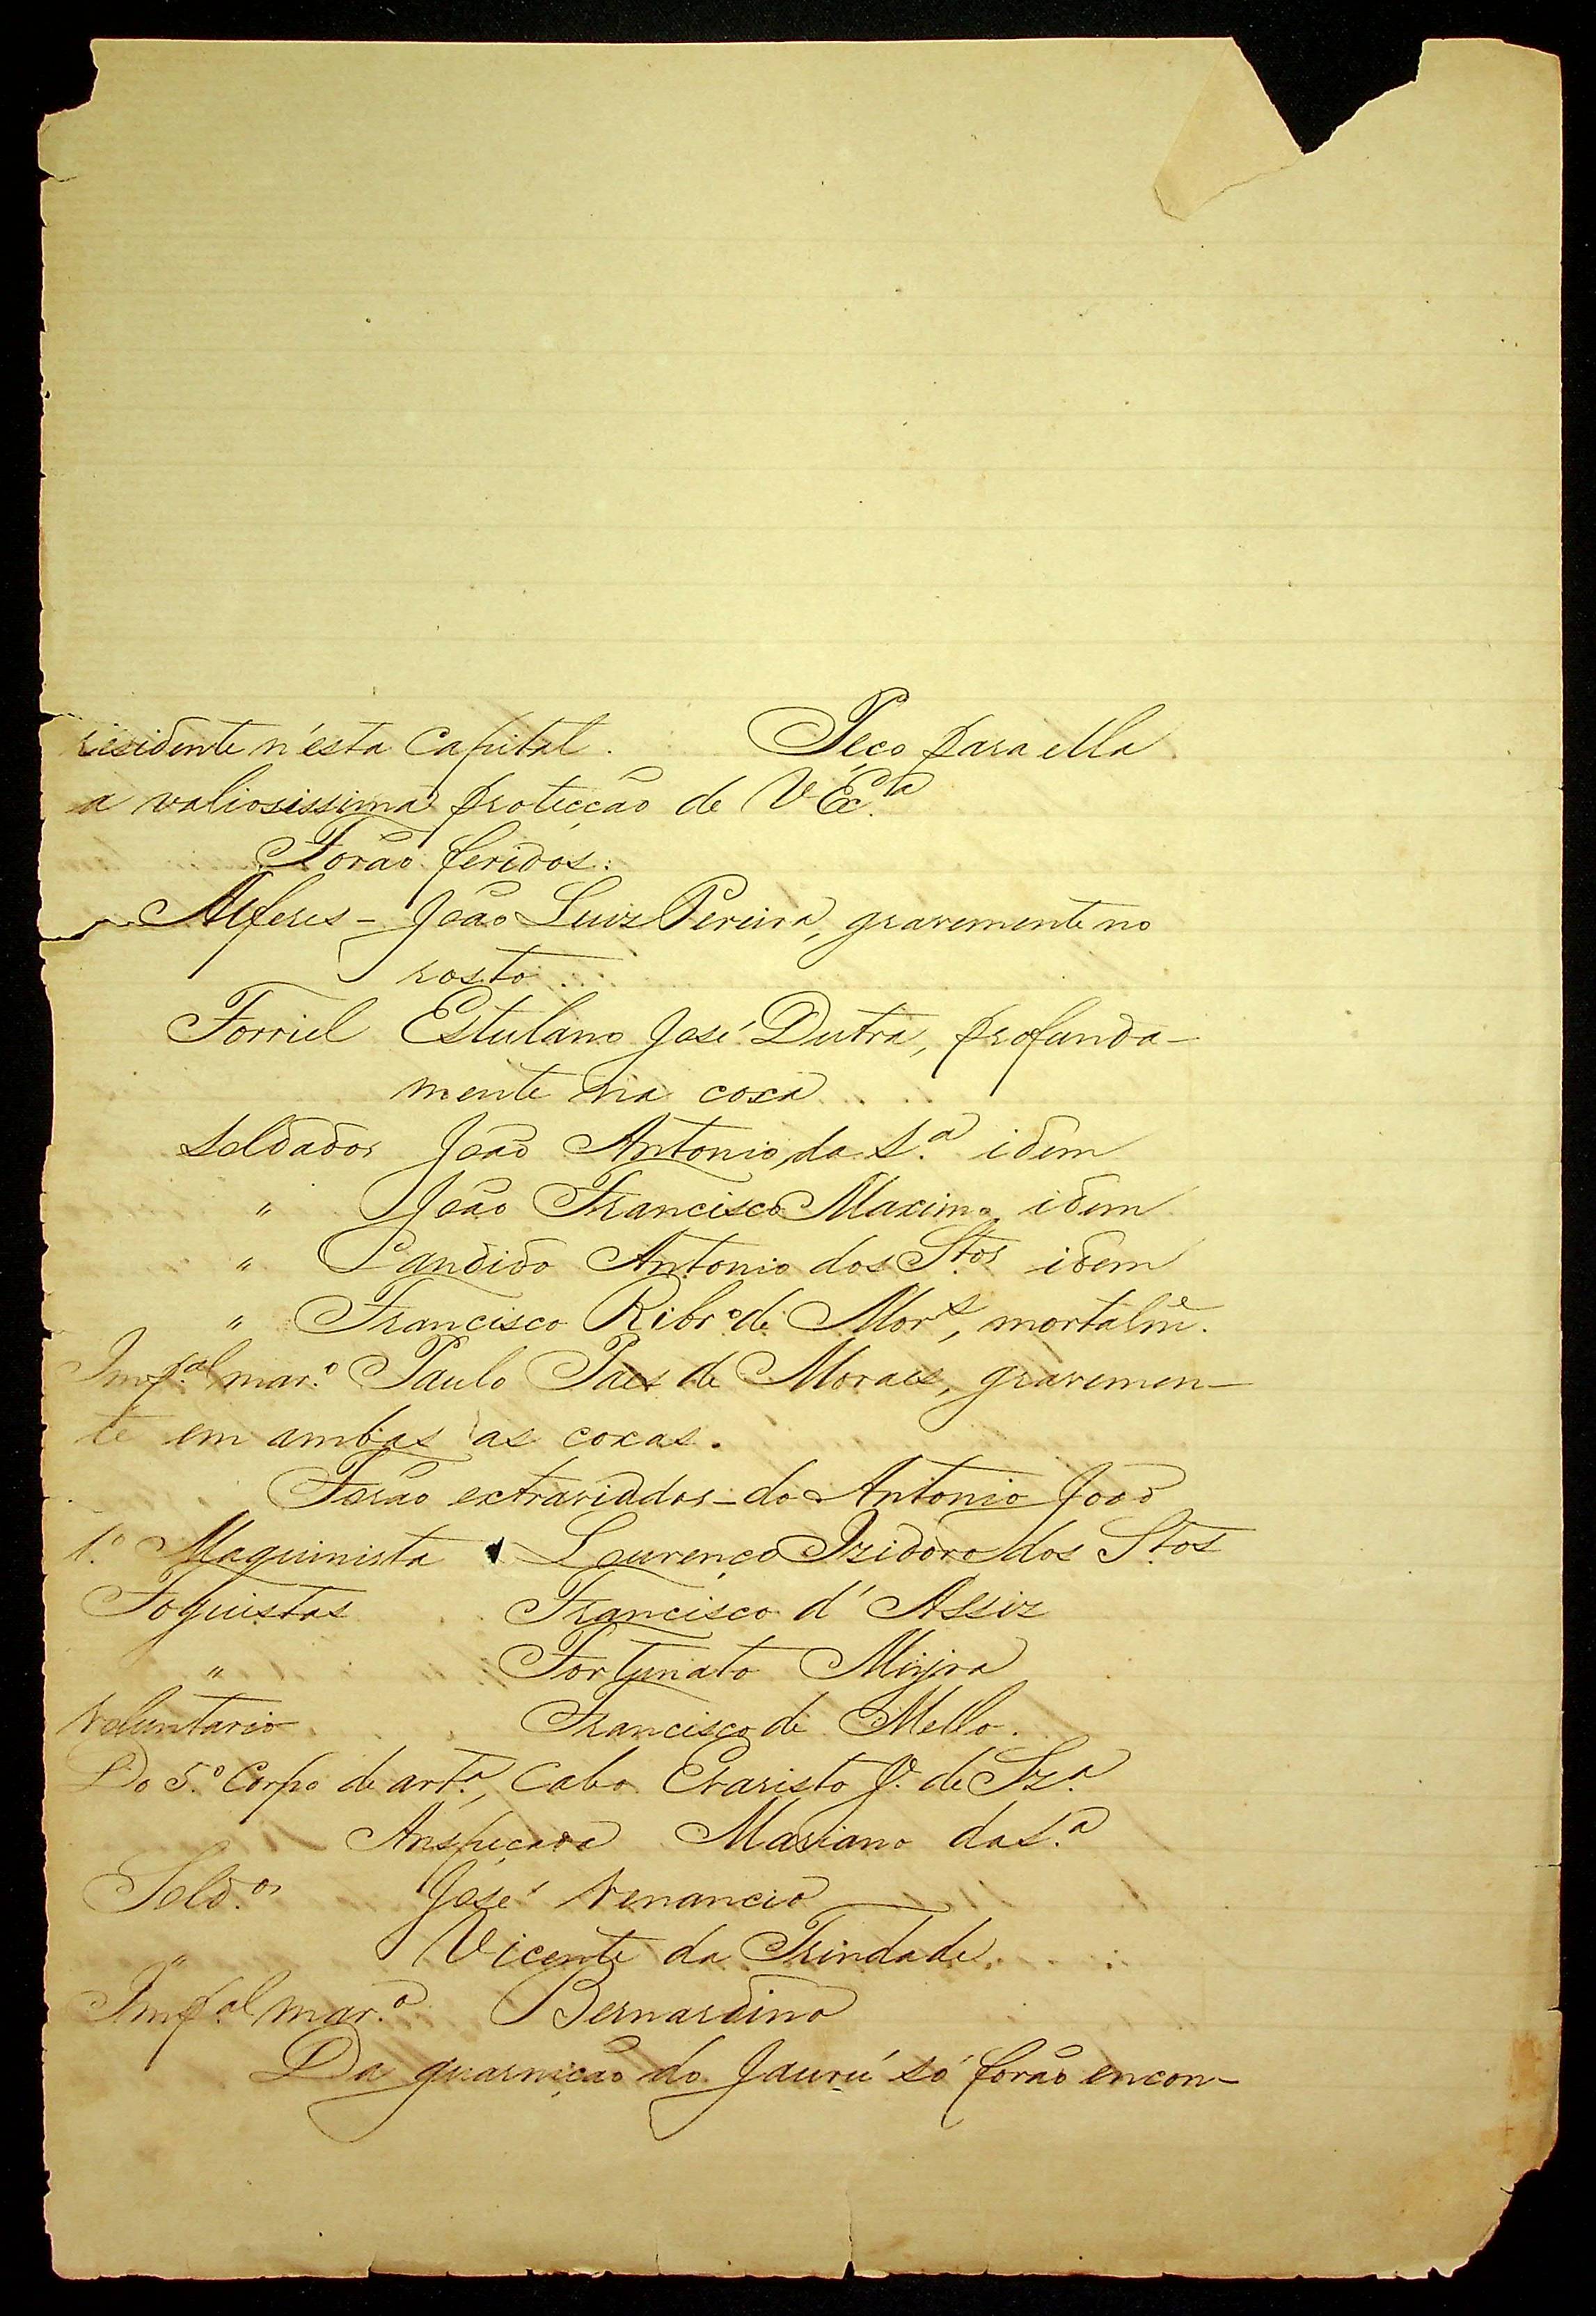 residente n'esta Capital. Peço para ella
a valiosissima protecção de V Ex.ª
Forão feridos:
Alferes - João Luiz Pereira, gravemente no
rosto
Forriel Estulano José Dutra, profunda-
mente na coxa
Soldados João Antonio da S.ª idem
" João Francisco Maximo idem
" Candido Antonio dos S.tos idem
" Francisco Ribr.º de Mor.s, mortalm.e
Imp.al mar.º Paulo Paes de Moraes, gravemen-
te em ambas as coxas.
Forão extraviados - do Antonio João
1.º Maquinista Lourenço Izidoro dos S.tos
Foguistas Francisco d'Assiz
" Fortunato
Voluntario Francisco de Mello.
Do 5.º Corpo de art.ª, Cabo Evaristo J.e de Sz.ª
Anspeçada Mariano da S.ª
Sold.os José Venancio
" Vicente da Trindade.
Imp.al mar.º Bernardino
Da guarnição do Jaurú só forão encon-